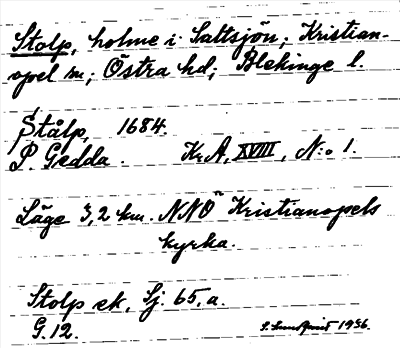 Stolp, holme i Saltsjön; Kristian-
opel sn; Östra hd; Blekinge l.
Stålp, 1684.
P. Gedda. Kr.A, XVIII, N:o 1.
Läge 3,2 km. NNO Kristianopels
kyrka.
Stolp ek, Sj. 65, a.
G. 12. 1936.